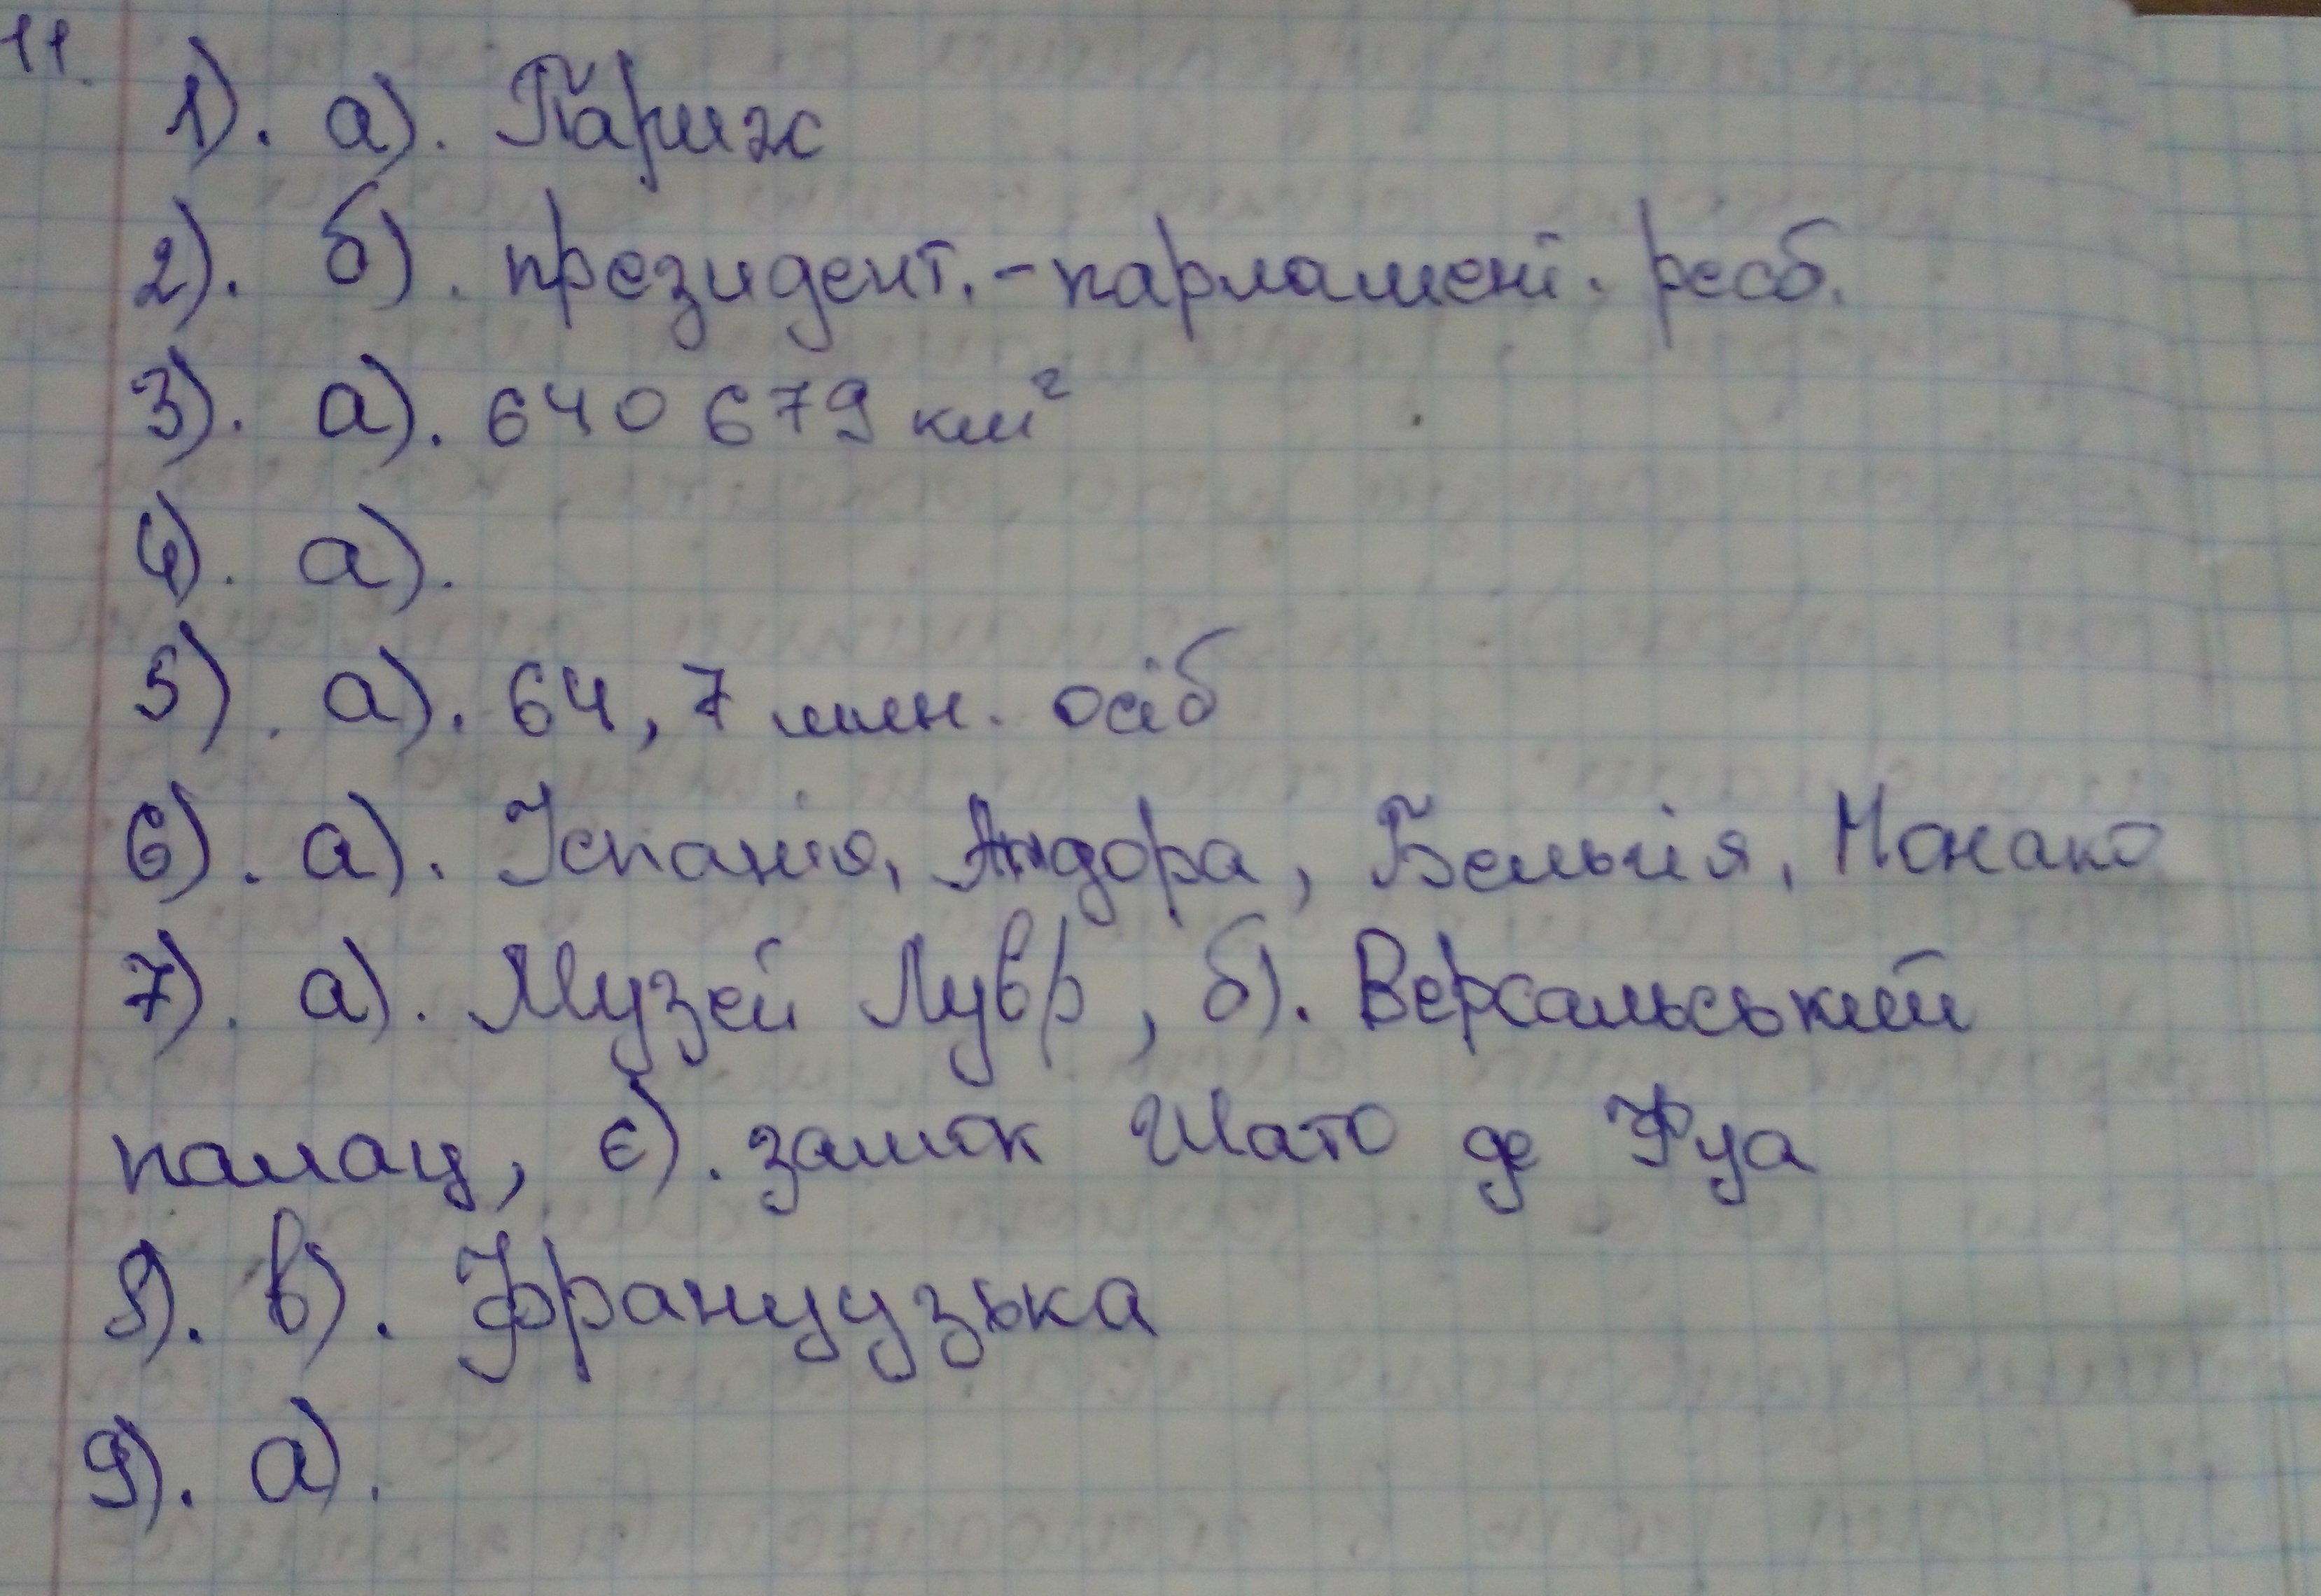 11.
1). а). Париж
2). б). президент.-парламент. респ.
3). а). 640 679 км²
4). а).
5). а). 64,7 млн. осіб
6). а). Іспанія, Андора, Бельгія, Монако
7). а). Музей Лувр, б). Версальський
палац, є). замок Шато де Фуа
8). в). Французька
9). а).